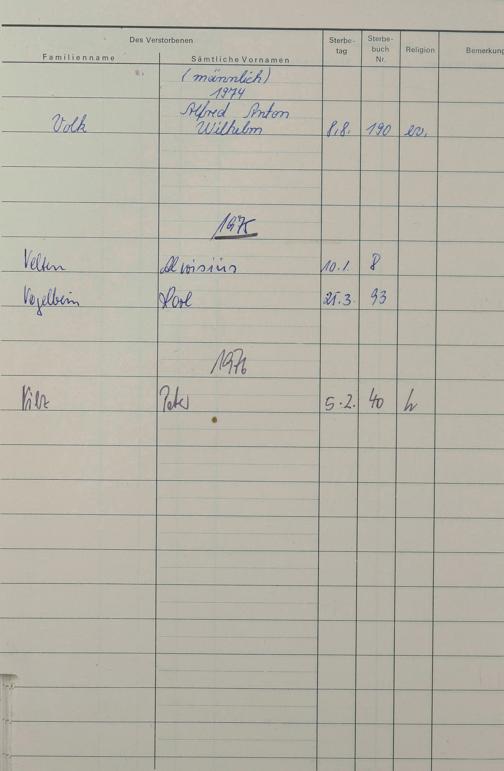 Des Verstorbenen
Familienname Sämtliche Vornamen Sterbe-tag Sterbe-buch Nr. Religion Bemerkung
(männlich)
1974
Alfred Anton
Volk Wilhelm 8.8. 190 ev.
1975
Velten Aloisius 10.1. 8
Vogelbein Karl 21.3. 93
1976
Vilz Peter 5.2. 40